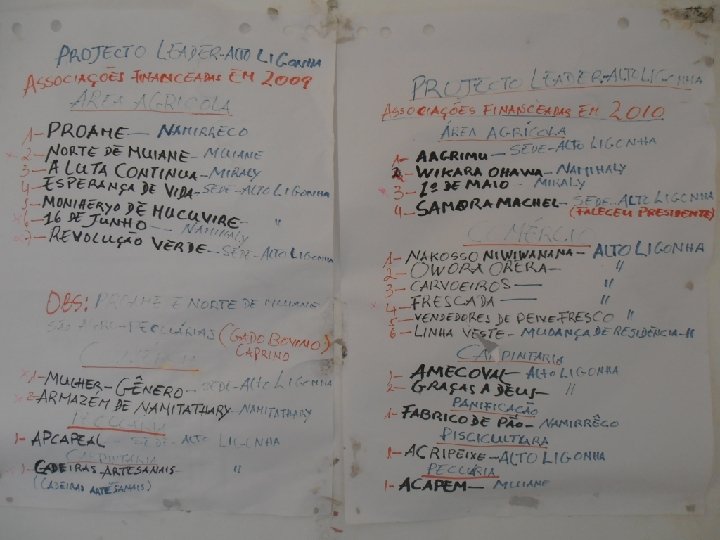 PROJECTO LEADER-ALTO LIGONHA
ASSOCIAÇÕES FINANCEADAS EM 2009
ÁREA AGRICOLA
1- PROAME - NAMIRRÊCO
2- NORTE DE MUIANE - MUIANE
3- A LUTA CONTINUA - MIRALY
4- ESPERANÇA DE VIDA - SEDE - ALTO LIGONHA
5- MONIHERYO DE MUCUVIRE - "
6- 16 DE JUNHO - NAMIHALY
7- REVOLUÇÃO VERDE - SEDE - ALTO LIGONHA
OBS: PROAME E NORTE DE MUIANE
SÃO AGRO-PECUÁRIAS (GADO BOVINO)
CAPRINO
COMÉRCIO
1- MULHER - GÊNERO - SEDE - ALTO LIGONHA
2- ARMAZÉM DE NAMITATHARY - NAMITATHARY
PECUÁRIA
1- APCAPEAL - SEDE - ALTO LIGONHA
CARPINTARIA
1- CADEIRAS ARTESANAIS - "
(CADEIRAS ARTESANAIS)
PROJECTO LEADER-ALTO LIGONHA
ASSOCIAÇÕES FINANCEADAS EM 2010
ÁREA AGRÍCOLA
1- AAGRIMU - SEDE - ALTO LIGONHA
2- WIKARA OHAWA - NAMIHALY
3- 1º DE MAIO - MIRALY
4- SAMORA MACHEL - SEDE - ALTO LIGONHA
(FALECEU PRESIDENTE)
COMÉRCIO
1- NAKOSSO NIWIWANANA - ALTO LIGONHA
2- OWORA ORERA - "
3- CARVOEIROS - "
4- FRESCADA - "
5- VENDEDORES DE PEIXE FRESCO "
6- LINHA VESTE - MUDANÇA DE RESIDÊNCIA - "
CARPINTARIA
1- AMECOVAL - ALTO LIGONHA
2- GRAÇAS A DEUS - "
PANIFICAÇÃO
1- FABRICO DE PÃO - NAMIRRÊCO
PISCICULTURA
1- AGRIPEIXE - ALTO LIGONHA
PECUÁRIA
1- ACAPEM - MUIANE